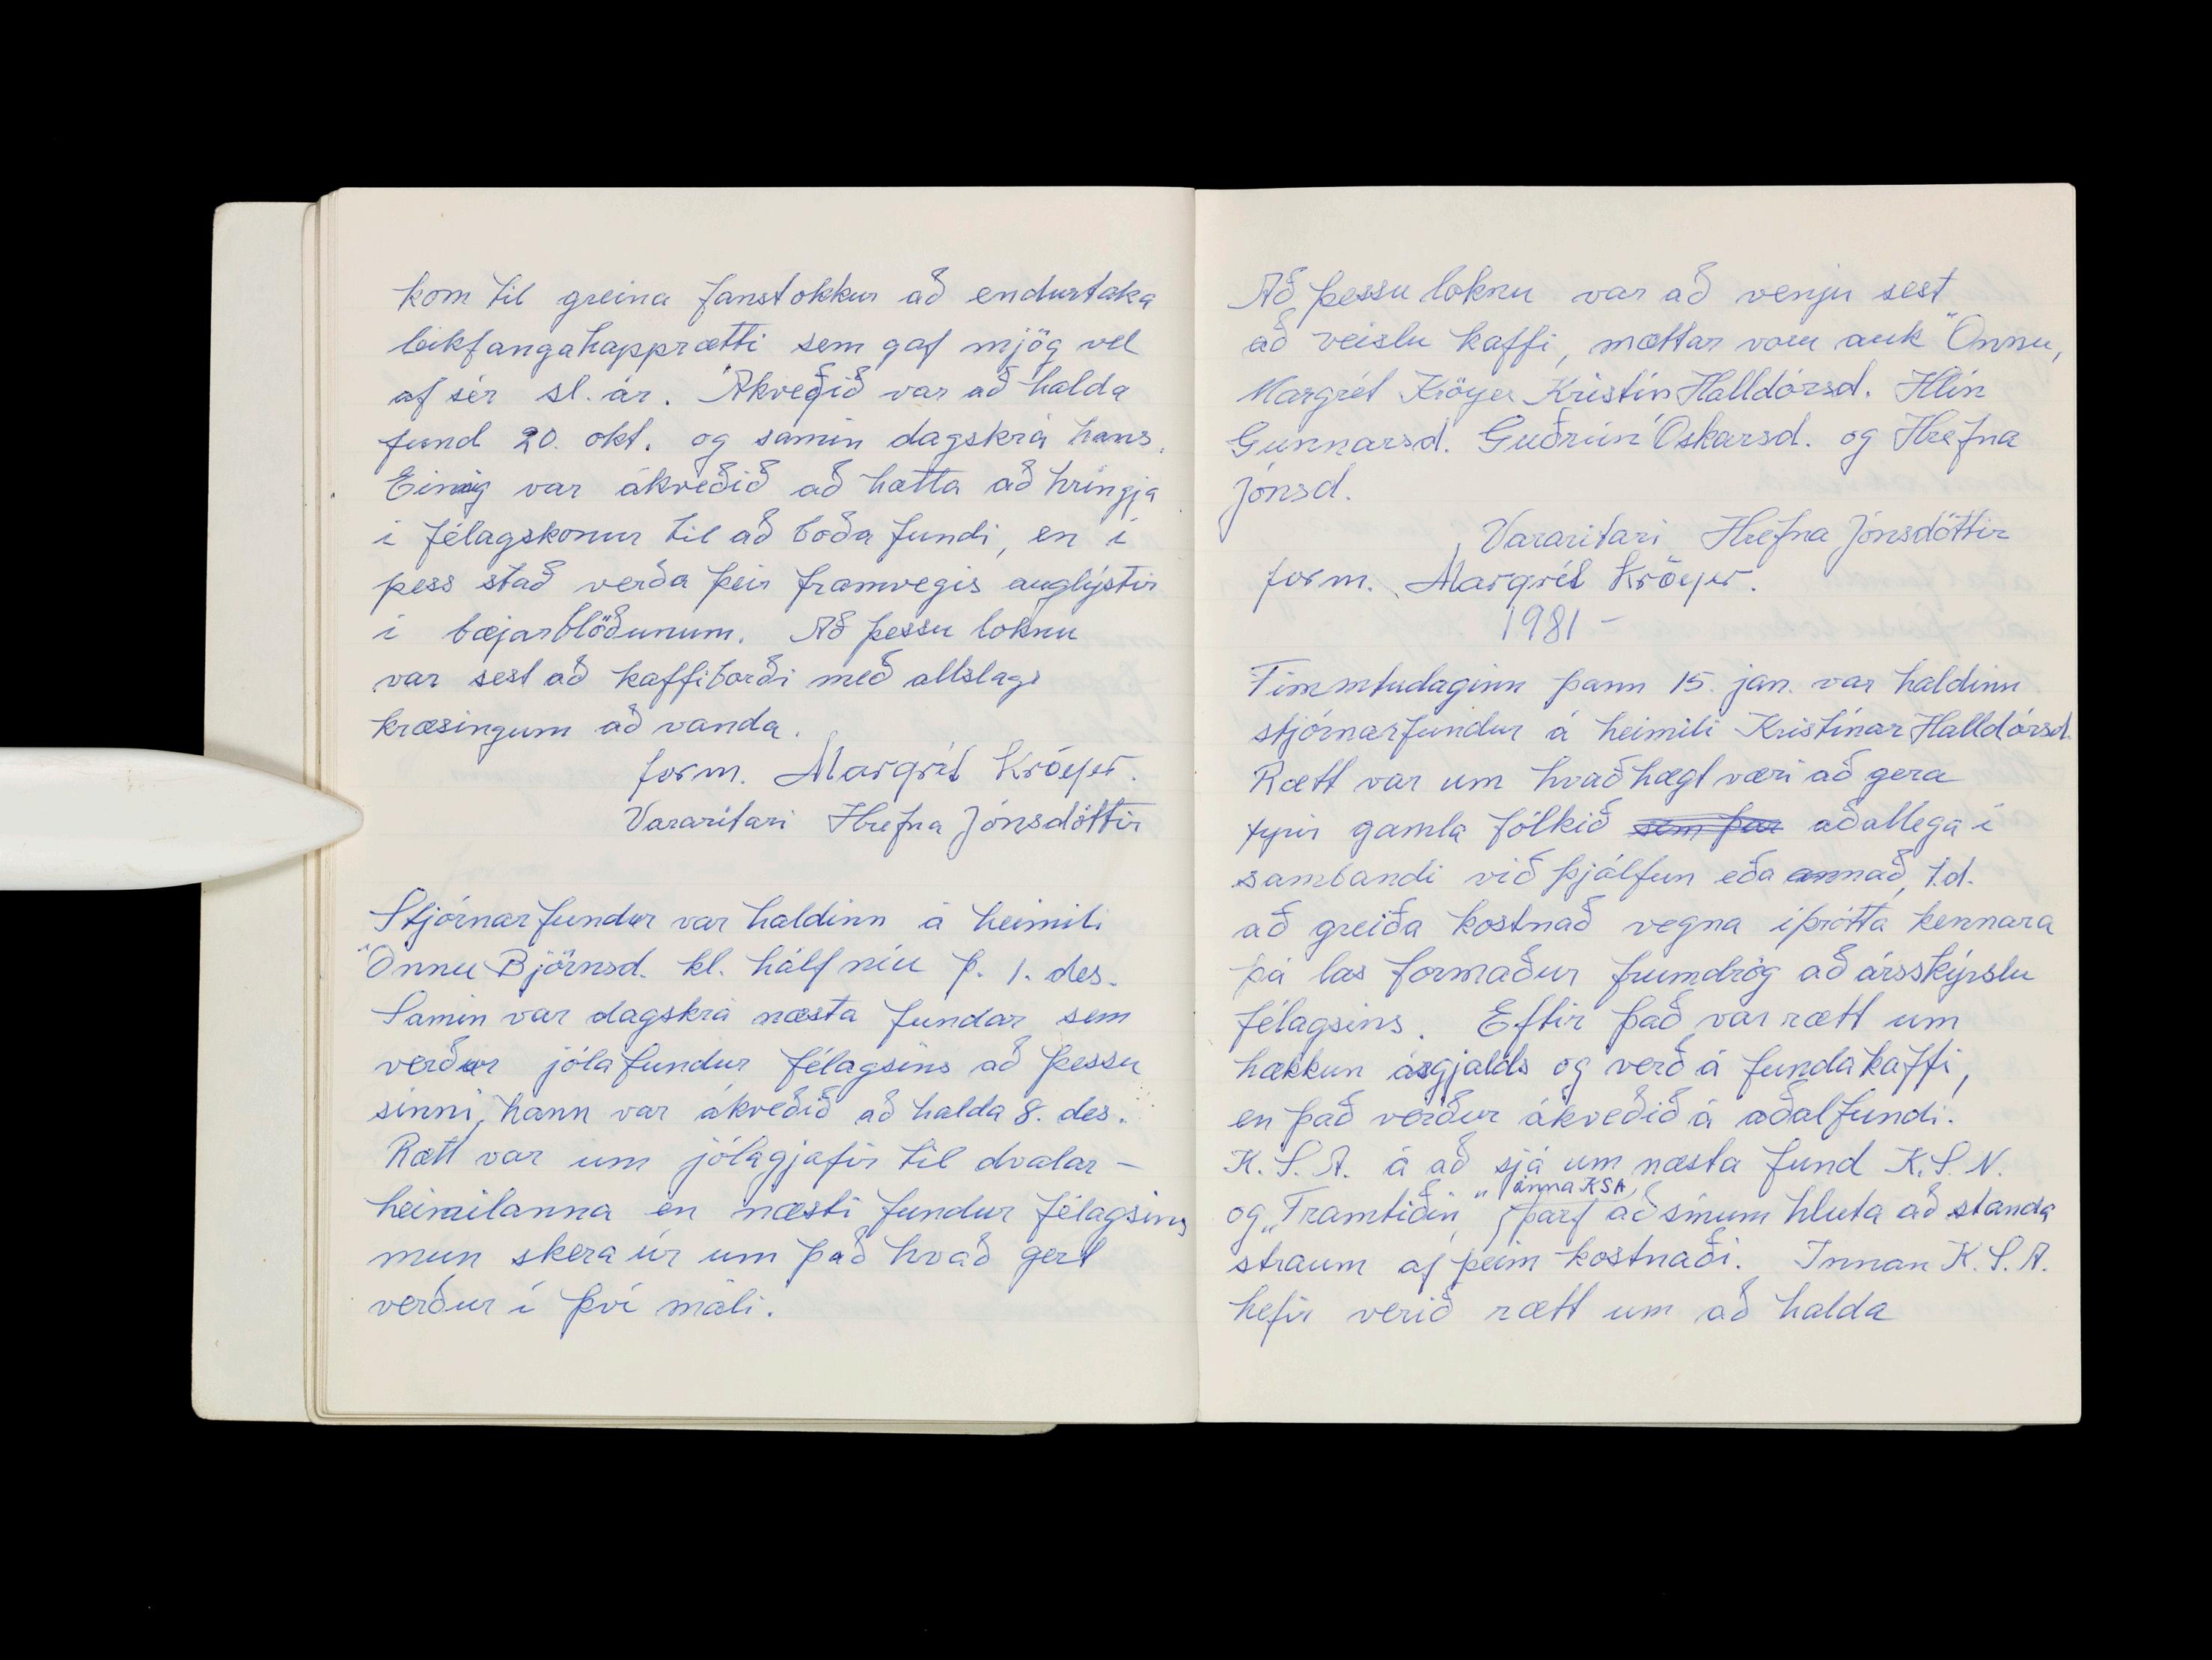 kom til greina fanst okkur að endurtaka
leikfangahappdrætti sem gaf mjög vel
af sér sl. ár. Ákveðið var að halda
fund 20. okt. og samin dagskrá hans.
Einnig var ákveðið að hætta að hringja
í félagskonur til að boða fundi, en í
þess stað verða þeir framvegis auglýstir
í bæjarblöðunum. Að þessu loknu
var sest að kaffiborði með allslags
kræsingum að vanda.
form. Margrét Kröyer.
Vararitari Hrefna Jónsdóttir
Stjórnarfundur var haldinn á heimili
Önnu Björnsd. kl. hálf níu þ. 1. des.
Samin var dagskrá næsta fundar sem
verður jólafundur félagsins að þessu
sinni, hann var ákveðið að halda 8. des.
Rætt var um jólagjafir til dvalar-
heimilanna en næsti fundur félagsins
mun skera úr um það hvað gert
verður í því máli.
Að þessu loknu var að venju sest
að veislu kaffi, mættar voru auk Önnu,
Margrét Kröyer Kristín Halldórsd. Hlín
Gunnarsd. Guðrún Óskarsd. og Hrefna
Jónsd.
Vararitari Hrefna Jónsdóttir
form. Margrét Kröyer.
1981 -
Fimmtudaginn þann 15. jan. var haldinn
stjórnarfundur á heimili Kristínar Halldórsd.
Rætt var um hvað hægt væri að gera
fyrir gamla fólkið sem þar aðallega í
sambandi við þjálfun eða annað, t.d.
að greiða kostnað vegna íþrótta kennara
þá las formaður frumdrög að ársskýrslu
félagsins. Eftir það var rætt um
hækkun árgjalds og verð á fundakaffi,
en það verður ákveðið á aðalfundi.
K.S.A. á að sjá um næsta fund K.S.N.
og „Framtíðin" þarf að sínum hluta að standa
straum af þeim kostnaði. Innan K.S.A.
hefir verið rætt um að halda